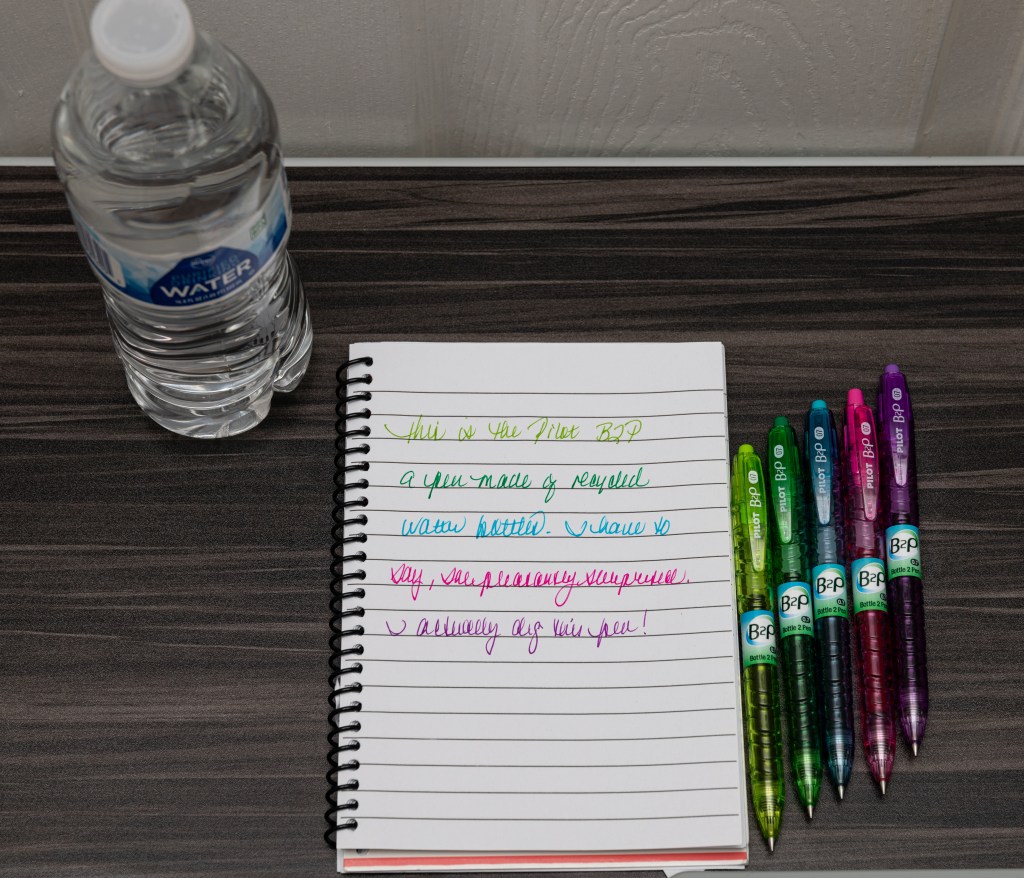 WATER
this is the Pilot B2P
a pen made of recycled
water bottles. I have to
say, I'm pleasantly surprised.
I actually dig this pen!
PILOT B2P 07
PILOT B2P 07
PILOT B2P 07
PILOT B2P 07
PILOT B2P 07
B2P
0.7
Bottle 2 Pen
B2P
0.7
Bottle 2 Pen
B2P
0.7
Bottle 2 Pen
B2P
0.7
Bottle 2 Pen
B2P
Bottle 2 P